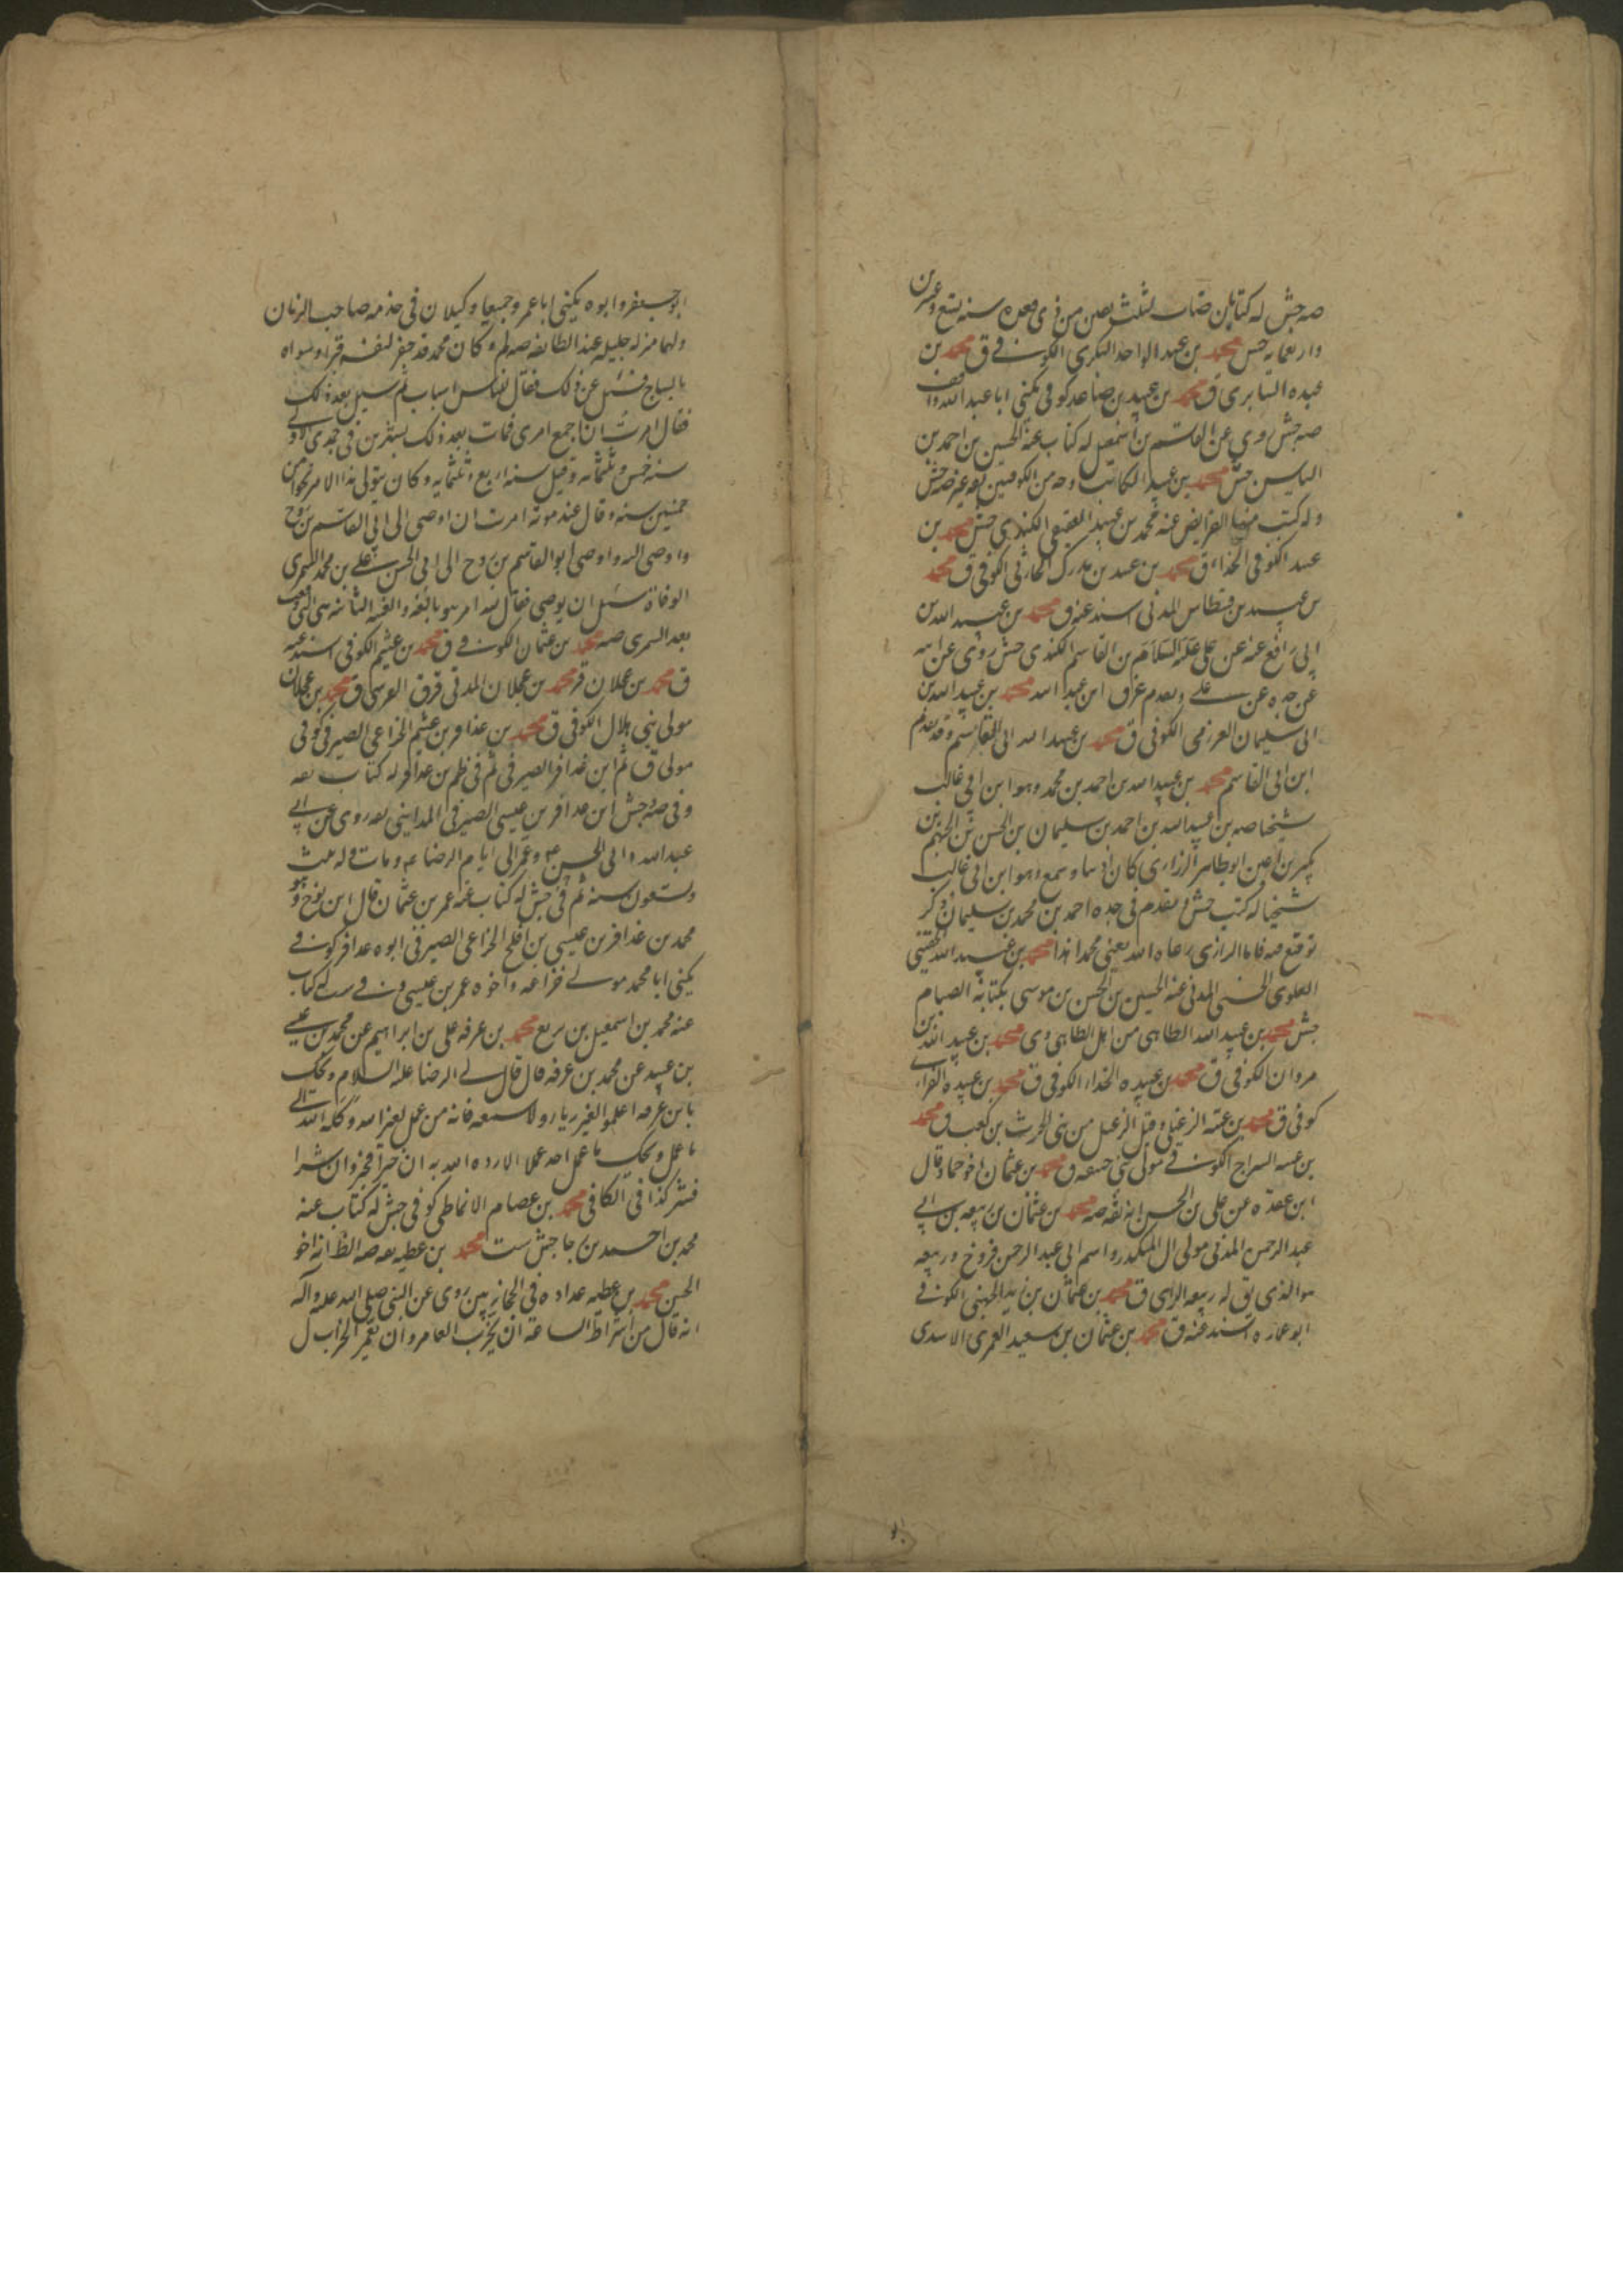 صه جش له كتابان مات لثلث بقين من ذى قعده سنه تسع وعشرين
واربعمايه جش محمد بن عبد الواحد البكرى الكوفى ق محمد بن
عبده السابرى ق محمد بن عبيد بن صاعد كوفى يكنى ابا عبد الله واقف
صه جش روى عن القاسم بن اسمعيل له كتاب عنه الحسين بن احمد بن
الياس جش محمد بن عبيد الكاتب وجه من الكوفيين ثقه عين صه جش
وله كتب منها الفرايض عنه محمد بن عبيد الكندى جش محمد بن
عبيد الكوفى الحذاء ق محمد بن عبيد بن مدرك الحارثى الكوفى ق محمد
بن عبيد بن قسطاس المدنى اسند عنه ق محمد بن عبيد الله بن
ابى رافع عنه عن على عليه السلام بن القاسم الكندى جش روى عن ابيه
عن جده عن على وتقدم عن ق ابن عبد الله محمد بن عبيد الله بن
ابى سليمان العرزمى الكوفى ق محمد بن عبيد الله ابى القاسم وقد تقدم
ابن ابى القاسم محمد بن عبيد الله بن احمد بن محمد وهو ابن ابى غالب
شيخنا صه بن عبيد الله بن احمد بن سليمان بن الحسن بن الجهم بن
بكير بن اعين ابو طاهر الزرارى كان اديبا وسمع وهو ابن ابى غالب
شيخنا له كتب جش وتقدم فى جده احمد بن محمد بن سليمان ذكر
توقيع فيه فاما الزرارى رعاه الله يعنى محمد هذا محمد بن عبيد الله الحقينى
العلوى الحسنى المدنى عنه الحسين بن الحسن بن موسى بكتابه الصيام
جش محمد بن عبيد الله الطاهى من اهل الطاهى دى محمد بن عبيد الله بن
مروان الكوفى ق محمد بن عبيده الحذاء الكوفى ق محمد بن عبيده الفراء
كوفى ق محمد بن عتبه الزعبلى وقيل الزعبل من بنى الحرث بن كعب ق محمد
بن عتبه السراج الكوفى مولى بنى ضبيعه ق محمد بن عثمان اخو حماد قال
ابن عقده عن على بن الحسن انه ثقه صه محمد بن عثمان بن ربيعه بن ابى
عبد الرحمن المدنى مولى ال المنكدر واسم ابى عبد الرحمن فروخ وربيعه
هو الذى يق له ربيعه الراى ق محمد بن عثمان بن زيد الجهنى الكوفى
ابو عماره اسند عنه ق محمد بن عثمان بن سعيد العمرى الاسدى
ابو جعفر وابوه يكنى ابا عمرو جميعا وكيلان فى خدمه صاحب الزمان
ولهما منزله جليله عند الطائفه صه لم وكان محمد قد حفر لنفسه قبرا وسواه
بالساج فسئل عن ذلك فقال للناس اسباب ثم سئل بعد ذلك
فقال امرت ان اجمع امرى فمات بعد ذلك بشهرين فى جمدى الاولى
سنه خمس وثلثمائه وقيل سنه اربع وثلثمايه وكان يتولى هذا الامر نحوا من
خمسين سنه وقال عند موته امرت ان اوصى الى ابى القاسم بن روح
واوصى اليه واوصى ابو القاسم بن روح الى ابى الحسن على بن محمد السمرى
الوفاة سئل ان يوصى فقال لله امر هو بالغه والغيبه الثانيه هى التى وقعت
بعد السمرى صه محمد بن عثمان الكوفى ق محمد بن عثيم الكوفى اسند عنه
ق محمد بن عجلان قر محمد بن عجلان المدنى قر ق القرشى ق محمد بن عجلان
مولى بنى هلال الكوفى ق محمد بن عذافر بن عثيم الخزاعى الصيرفى كوفى
مولى ق ثم ابن عذافر الصيرفى ثم فى ظم بن عذافر له كتاب ثقه
وفى صه وجش ابن عذافر بن عيسى الصيرفى المداينى ثقه روى عن ابى
عبد الله وابى الحسن ع وعمر الى ايام الرضا ع ومات وله ثلث
وتسعون سنه ثم فى جش له كتاب عنه عمر بن عثمان قال ابن نوح وهو
محمد بن عذافر بن عيسى بن افلح الخزاعى الصيرفى ابوه عذافر كوفى
يكنى ابا محمد مولى خزاعه واخوه عمر بن عيسى وفى ست له كتاب
عنه محمد بن اسمعيل بن بزيع محمد بن عرفه على بن ابراهيم عن محمد بن عيسى
بن عبيد عن محمد بن عرفه قال قال لى الرضا عليه السلام ويحك
يا بن عرفه اعملوا لغير رياء ولا سمعه فانه من عمل لغير الله وكله الله الى
ما عمل ويحك ما عمل احد عملا الا رده الله به ان خيرا فخير وان شرا
فشر كذا فى الكافى محمد بن عصام الانماطى كوفى جش له كتاب عنه
محمد بن احمد بن جا جش ست محمد بن عطيه ثقه صه الظ انه اخو
الحسن محمد بن عطيه عداده فى الحجازيين روى عن النبى صلى الله عليه واله
انه قال من اشراط الساعه ان يخرب العامر وان يعمر الخراب ل